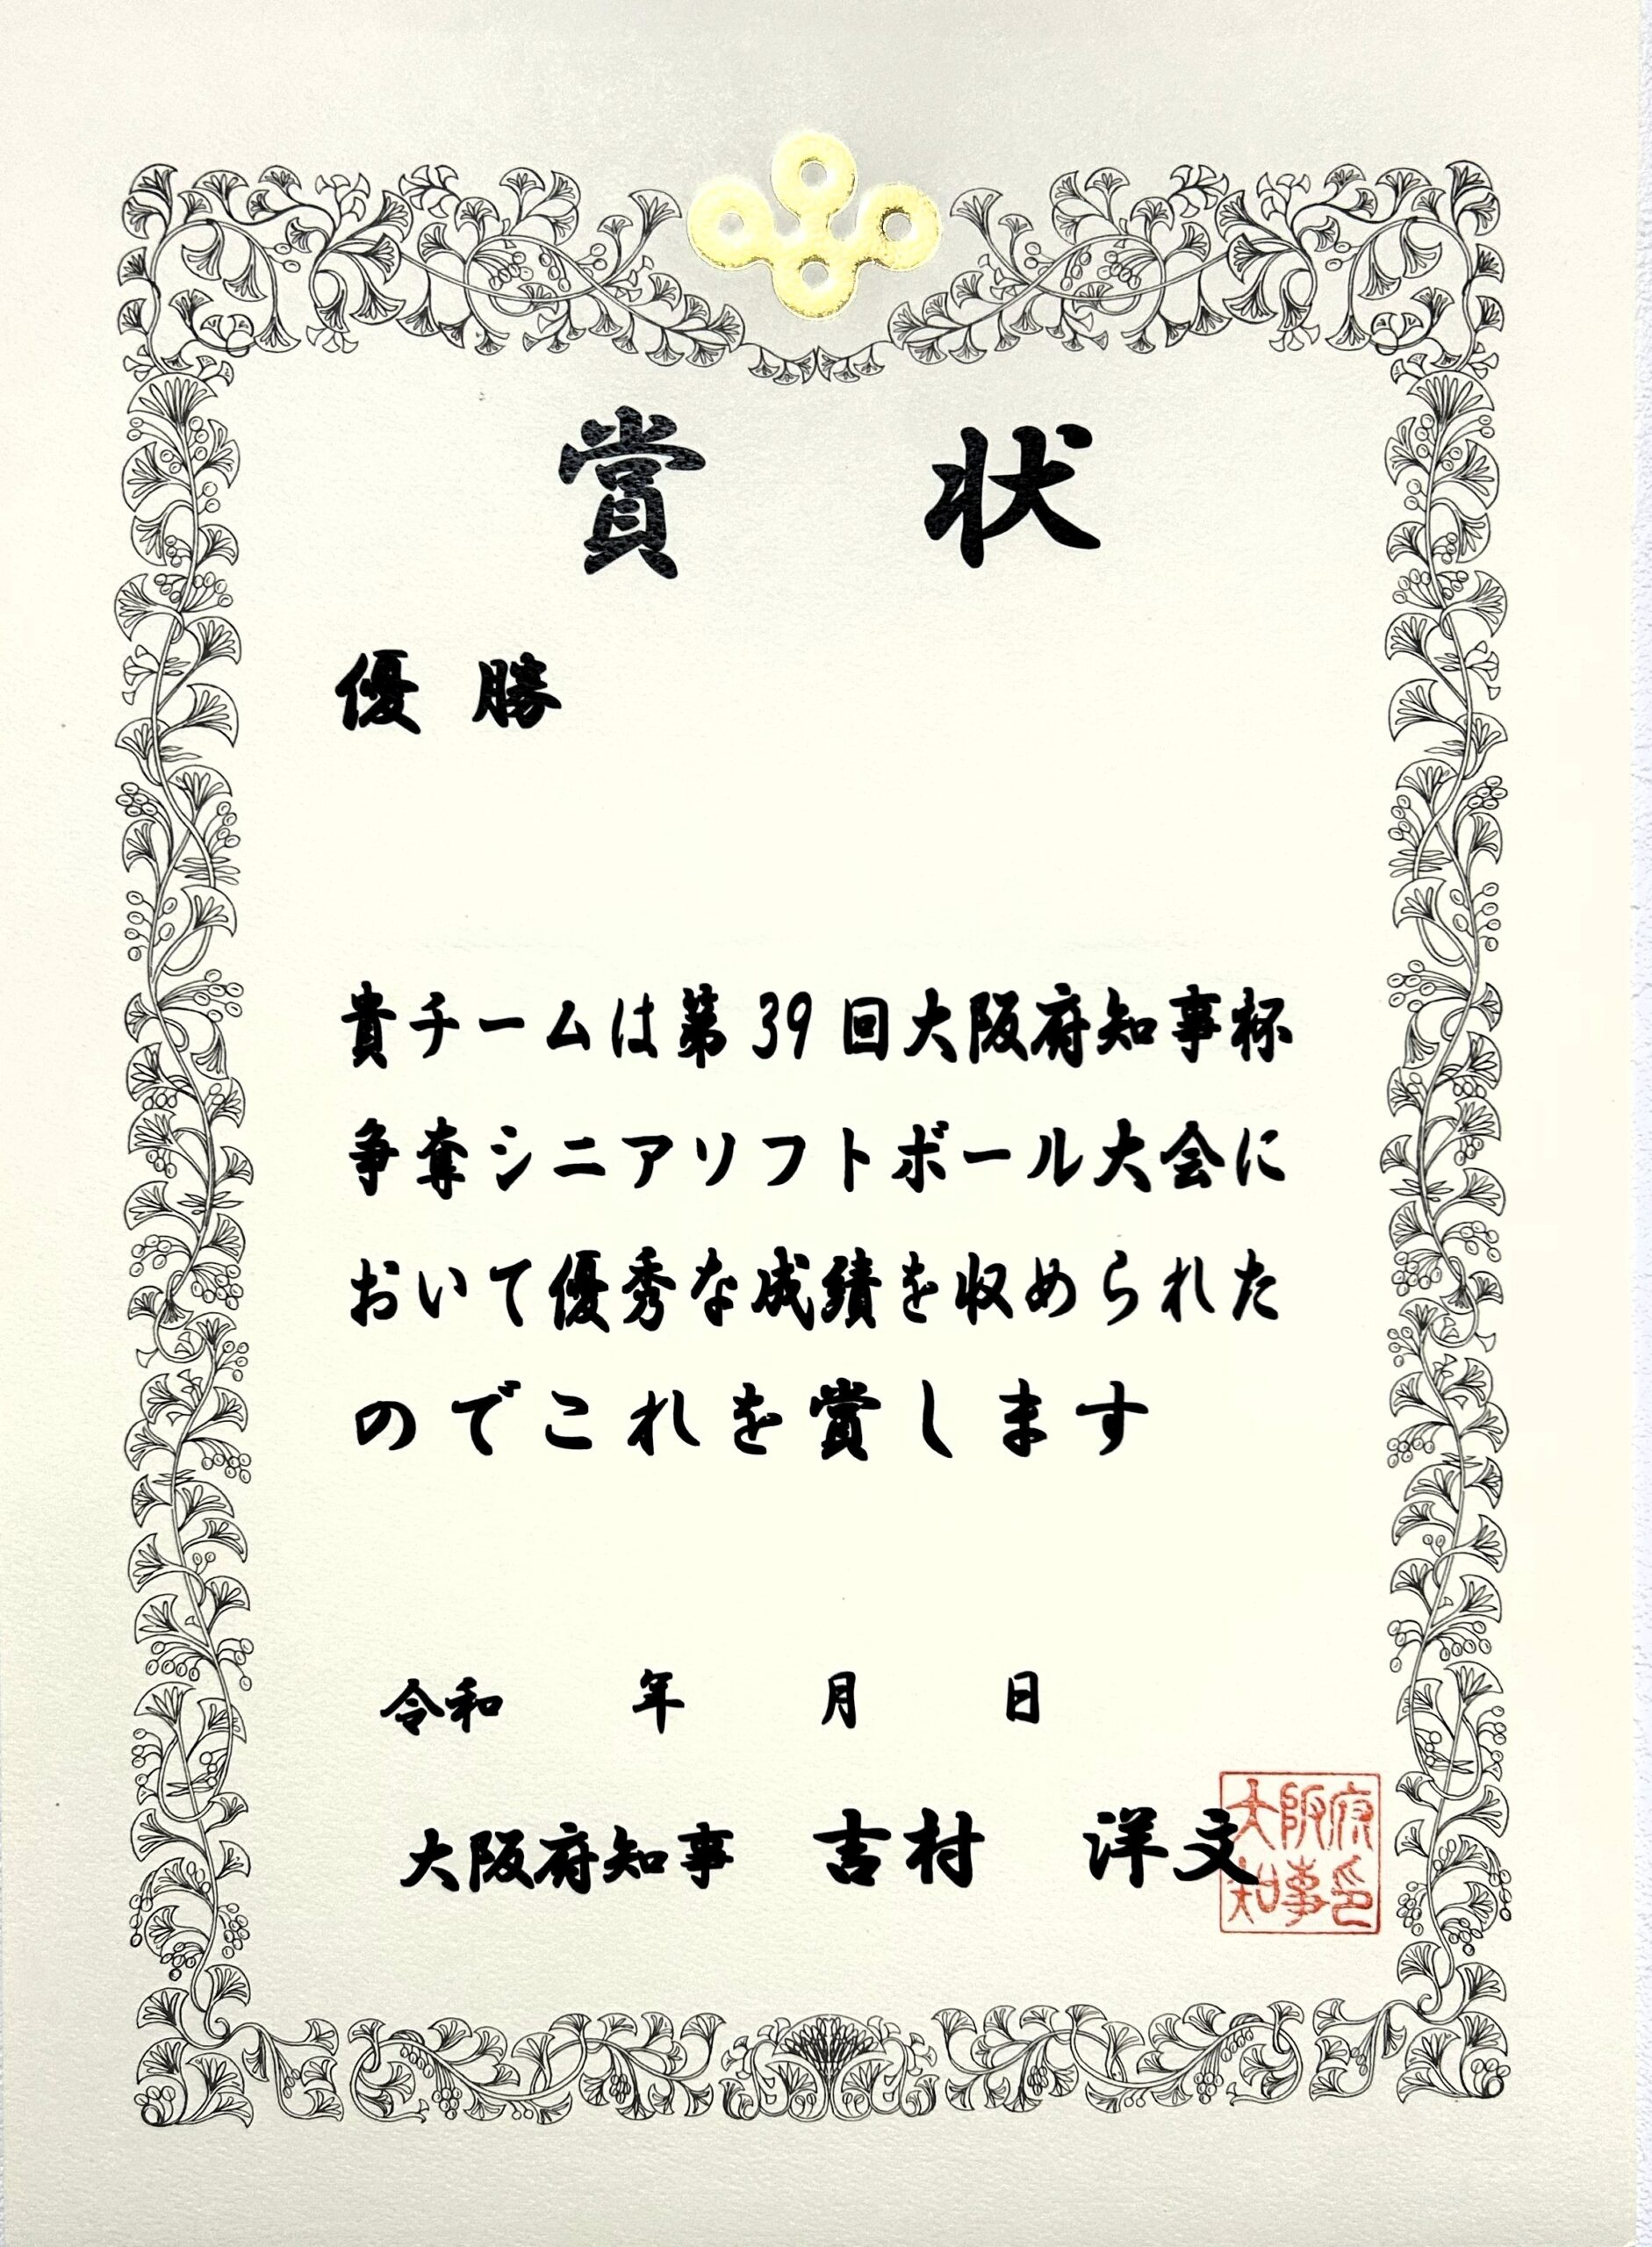 賞状
優勝
貴チームは第39回大阪府知事杯
争奪シニアソフトボール大会に
おいて優秀な成績を収められた
のでこれを賞します
令和 年 月 日
大阪府知事 吉村 洋文
大阪府
知事印